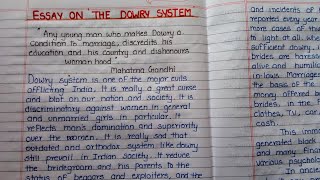 ESSAY ON THE DOWRY SYSTEM
"Any young man who makes Dowry a
Condition to marriage, discredits his
education and his country and dishonours
woman hood".
Mahatma Gandhi
Dowry system is one of the major evils
afflicting India, It is really a great curse
and blot on our nation and society. It is
discriminatory against women in general
and unmarried girls in particular. It
reflects man's domination and superiority
over the women. It is really sad that
outdated and orthodox system, like dowry
still prevail in Indian society. It reduce
the bridegroom and his parents to the
status of beggars and exploiters, and the
and incidents of
reported every year
more cases of this
to light at all.
sufficient dowry,
brides are harass
alive and humilia
in-laws. Marriages
the basis of the
money offered b
brides, in the f
clothes, T.V., car,
cash.
This immo
generated black
and many. Fina
various psycholo
In ancie